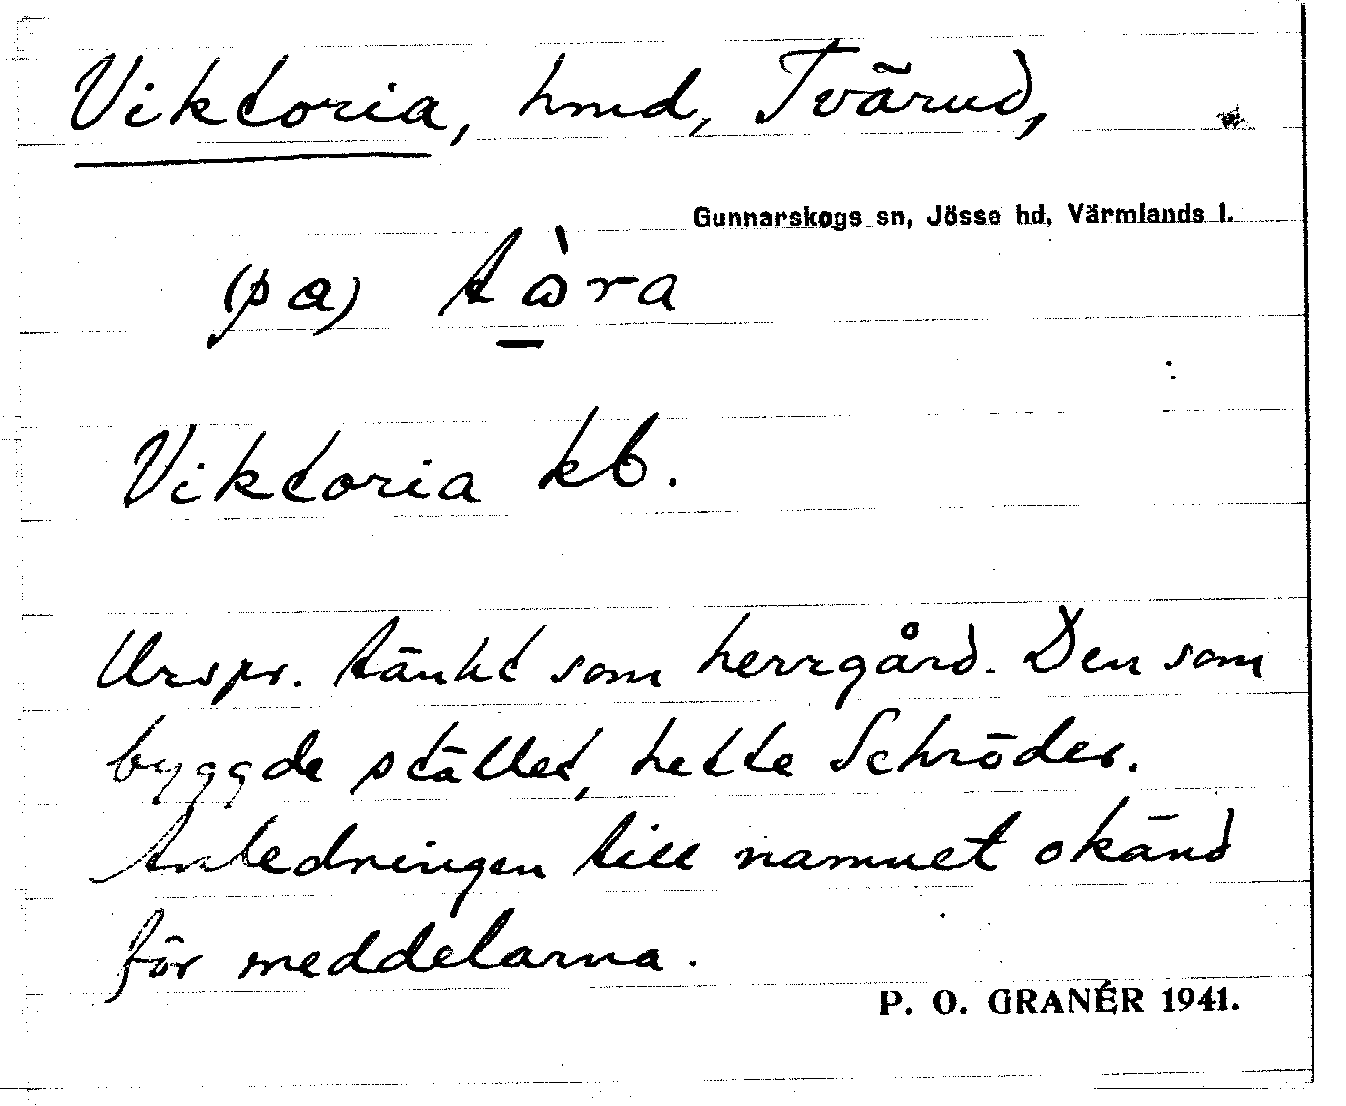 Viktoria, hmd, Tvärud,
Gunnarskogs sn, Jösse hd, Värmlands l.
(pa) tòra
Viktoria kb.
Urspr. tänkt som herrgård. Den som
byggde stället, hette Schröder.
Anledningen till namnet okänd
för meddelarna.
P. O. GRANÉR 1941.